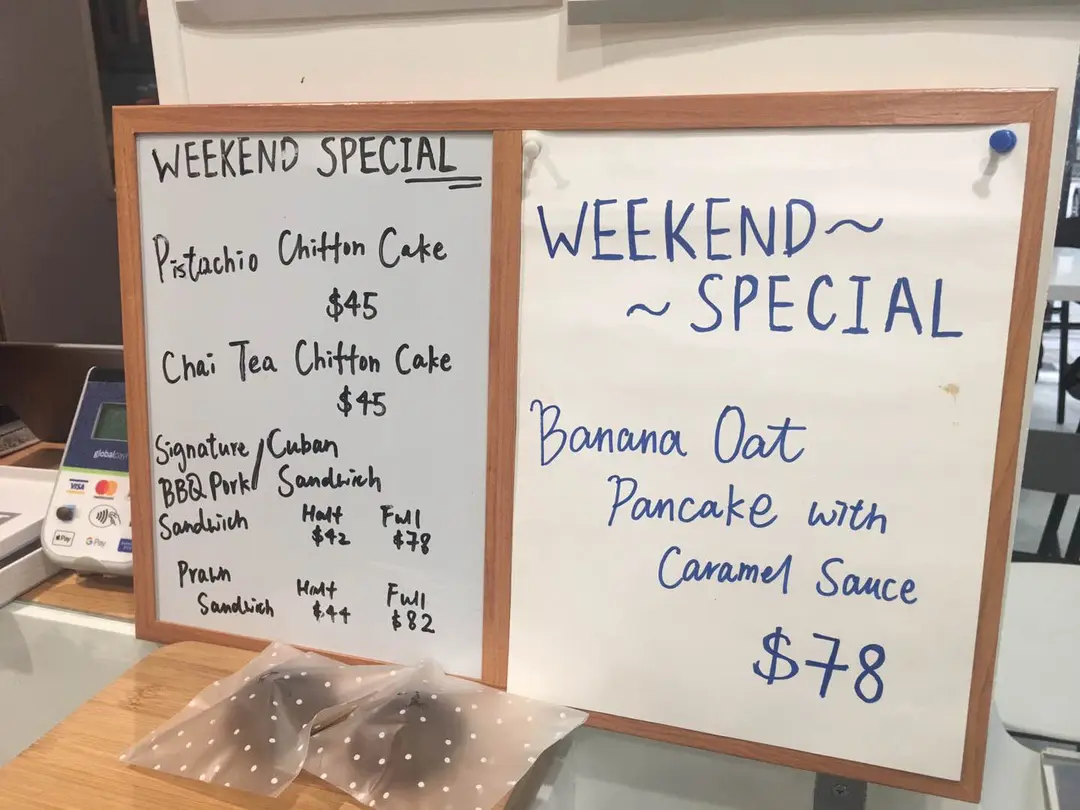 WEEKEND SPECIAL
Pistachio Chiffon Cake
$45
Chai Tea Chiffon Cake
$45
Signature / Cuban
BBQ Pork Sandwich
Sandwich Half Full
$42 $78
Prawn Half Full
Sandwich $44 $82
WEEKEND~
~SPECIAL
Banana Oat
Pancake with
Caramel Sauce
$78
global
VISA
Pay
G Pay